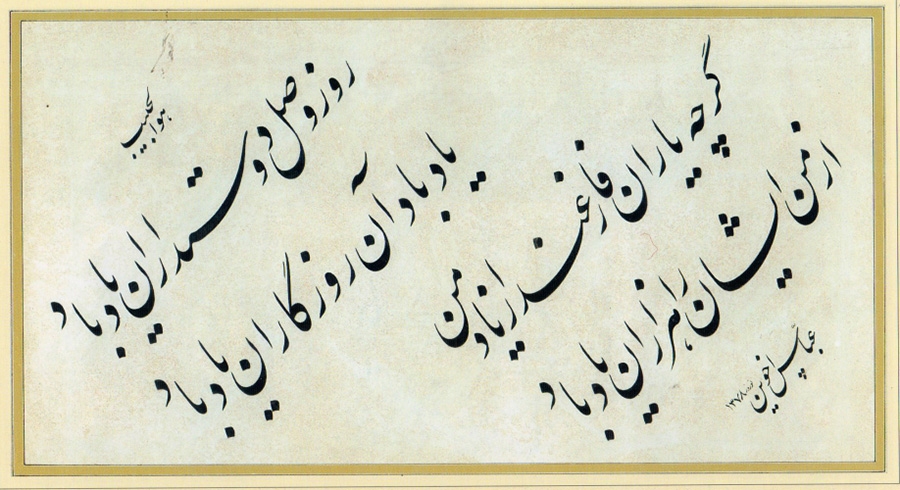 هوالحبیب
روز وصل دوستداران یاد باد
یاد باد آن روزگاران یاد باد
گرچه یاران فارغند از یاد من
از من ایشان را هزاران یاد باد
عباس اخوین
۱۳۷۸